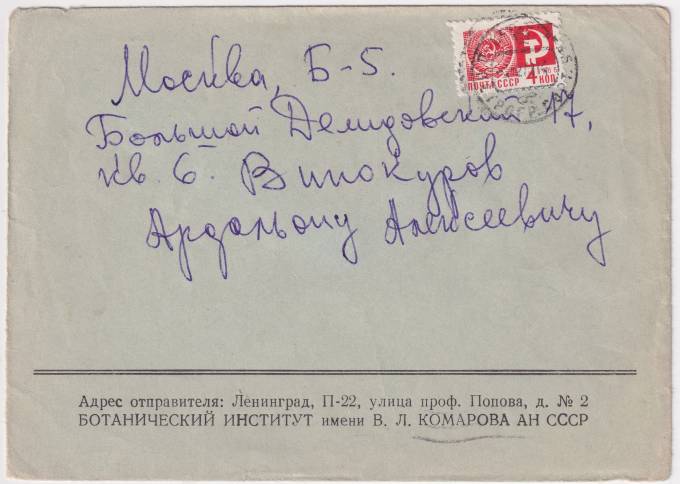 ПОЧТА СССР 4 КОП
Москва, Б-5.
Большой Демидовский 17,
кв. 6. Винокуров
Ардальону Алексеевичу
Адрес отправителя: Ленинград, П-22, улица проф. Попова, д. № 2
БОТАНИЧЕСКИЙ ИНСТИТУТ имени В. Л. КОМАРОВА АН СССР